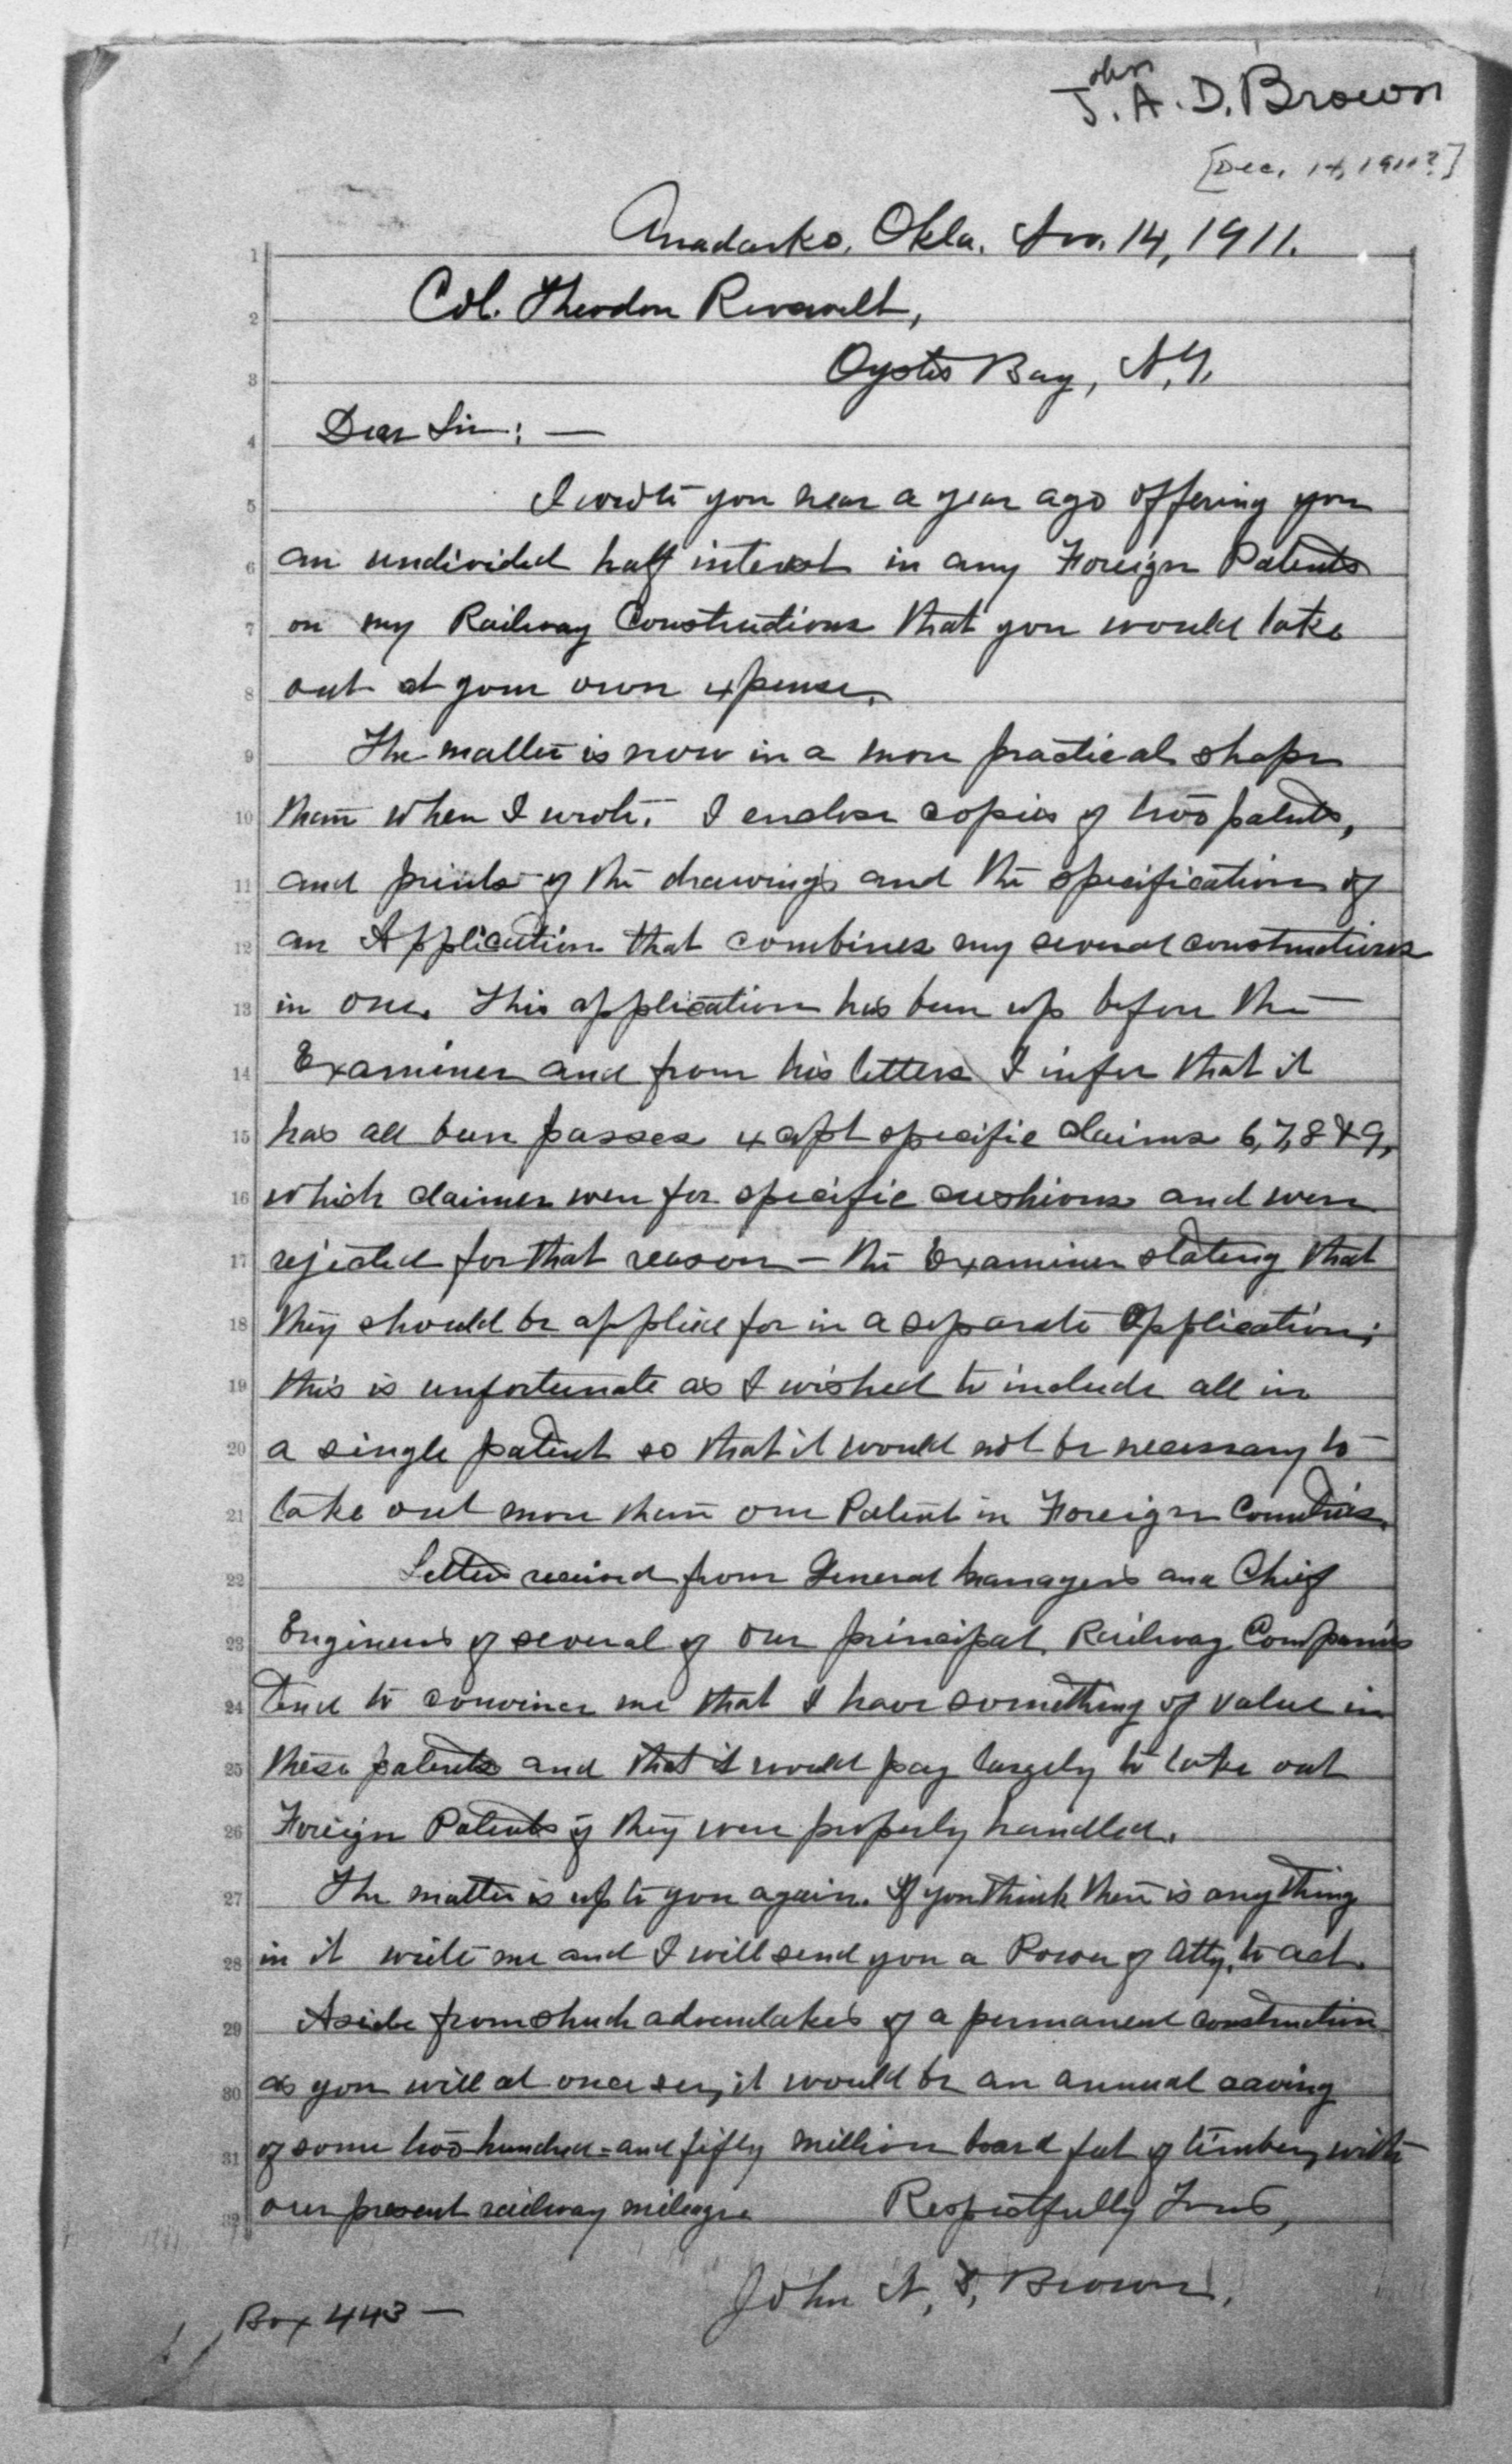 John
J. A. D. Brown
[Dec. 14, 1911?]
Anadarko, Okla. 14, 1911.
1
Col. Theodore Roosevelt,
2
Oyster Bay, N.Y.
3
Dear Sir: —
4
I wrote you near a year ago offering you
5
an undivided half interest in any Foreign Patents
6
on my Railway Constructions that you would take
7
out at your own expense.
8
The matter is now in a more practical shape
9
than when I wrote. I enclose copies of two patents,
10
and prints of the drawings and the specifications of
11
an Application that combines my several constructions
12
in one. This application has been up before the
13
Examiner and from his letters I infer that it
14
has all been passes except specific claims 6, 7, 8 & 9,
15
which claimes were for specific cushions and were
16
rejected for that reason — the Examiner stating that
17
they should be applied for in a separate Application;
18
this is unfortunate as I wished to include all in
19
a single patent so that it would not be necessary to
20
take out more than one Patent in Foreign Countries.
21
Letters received from General Managers and Chief
22
Engineers of several of our principal Railway Companies
23
tend to convince me that I have something of value in
24
these patents and that it would pay largely to take out
25
Foreign Patents if they were properly handled.
26
The matter is up to you again. If you think there is anything
27
in it write me and I will send you a Power of Atty. to act.
28
Aside from shuch advantakes of a permanent construction
29
as you will at once see, it would be an annual saving
30
of some two-hundred-and fifty million board feet of timber, with
31
our present railway mileage. Respectfully Yours,
32
John Brown.
Box 443 —